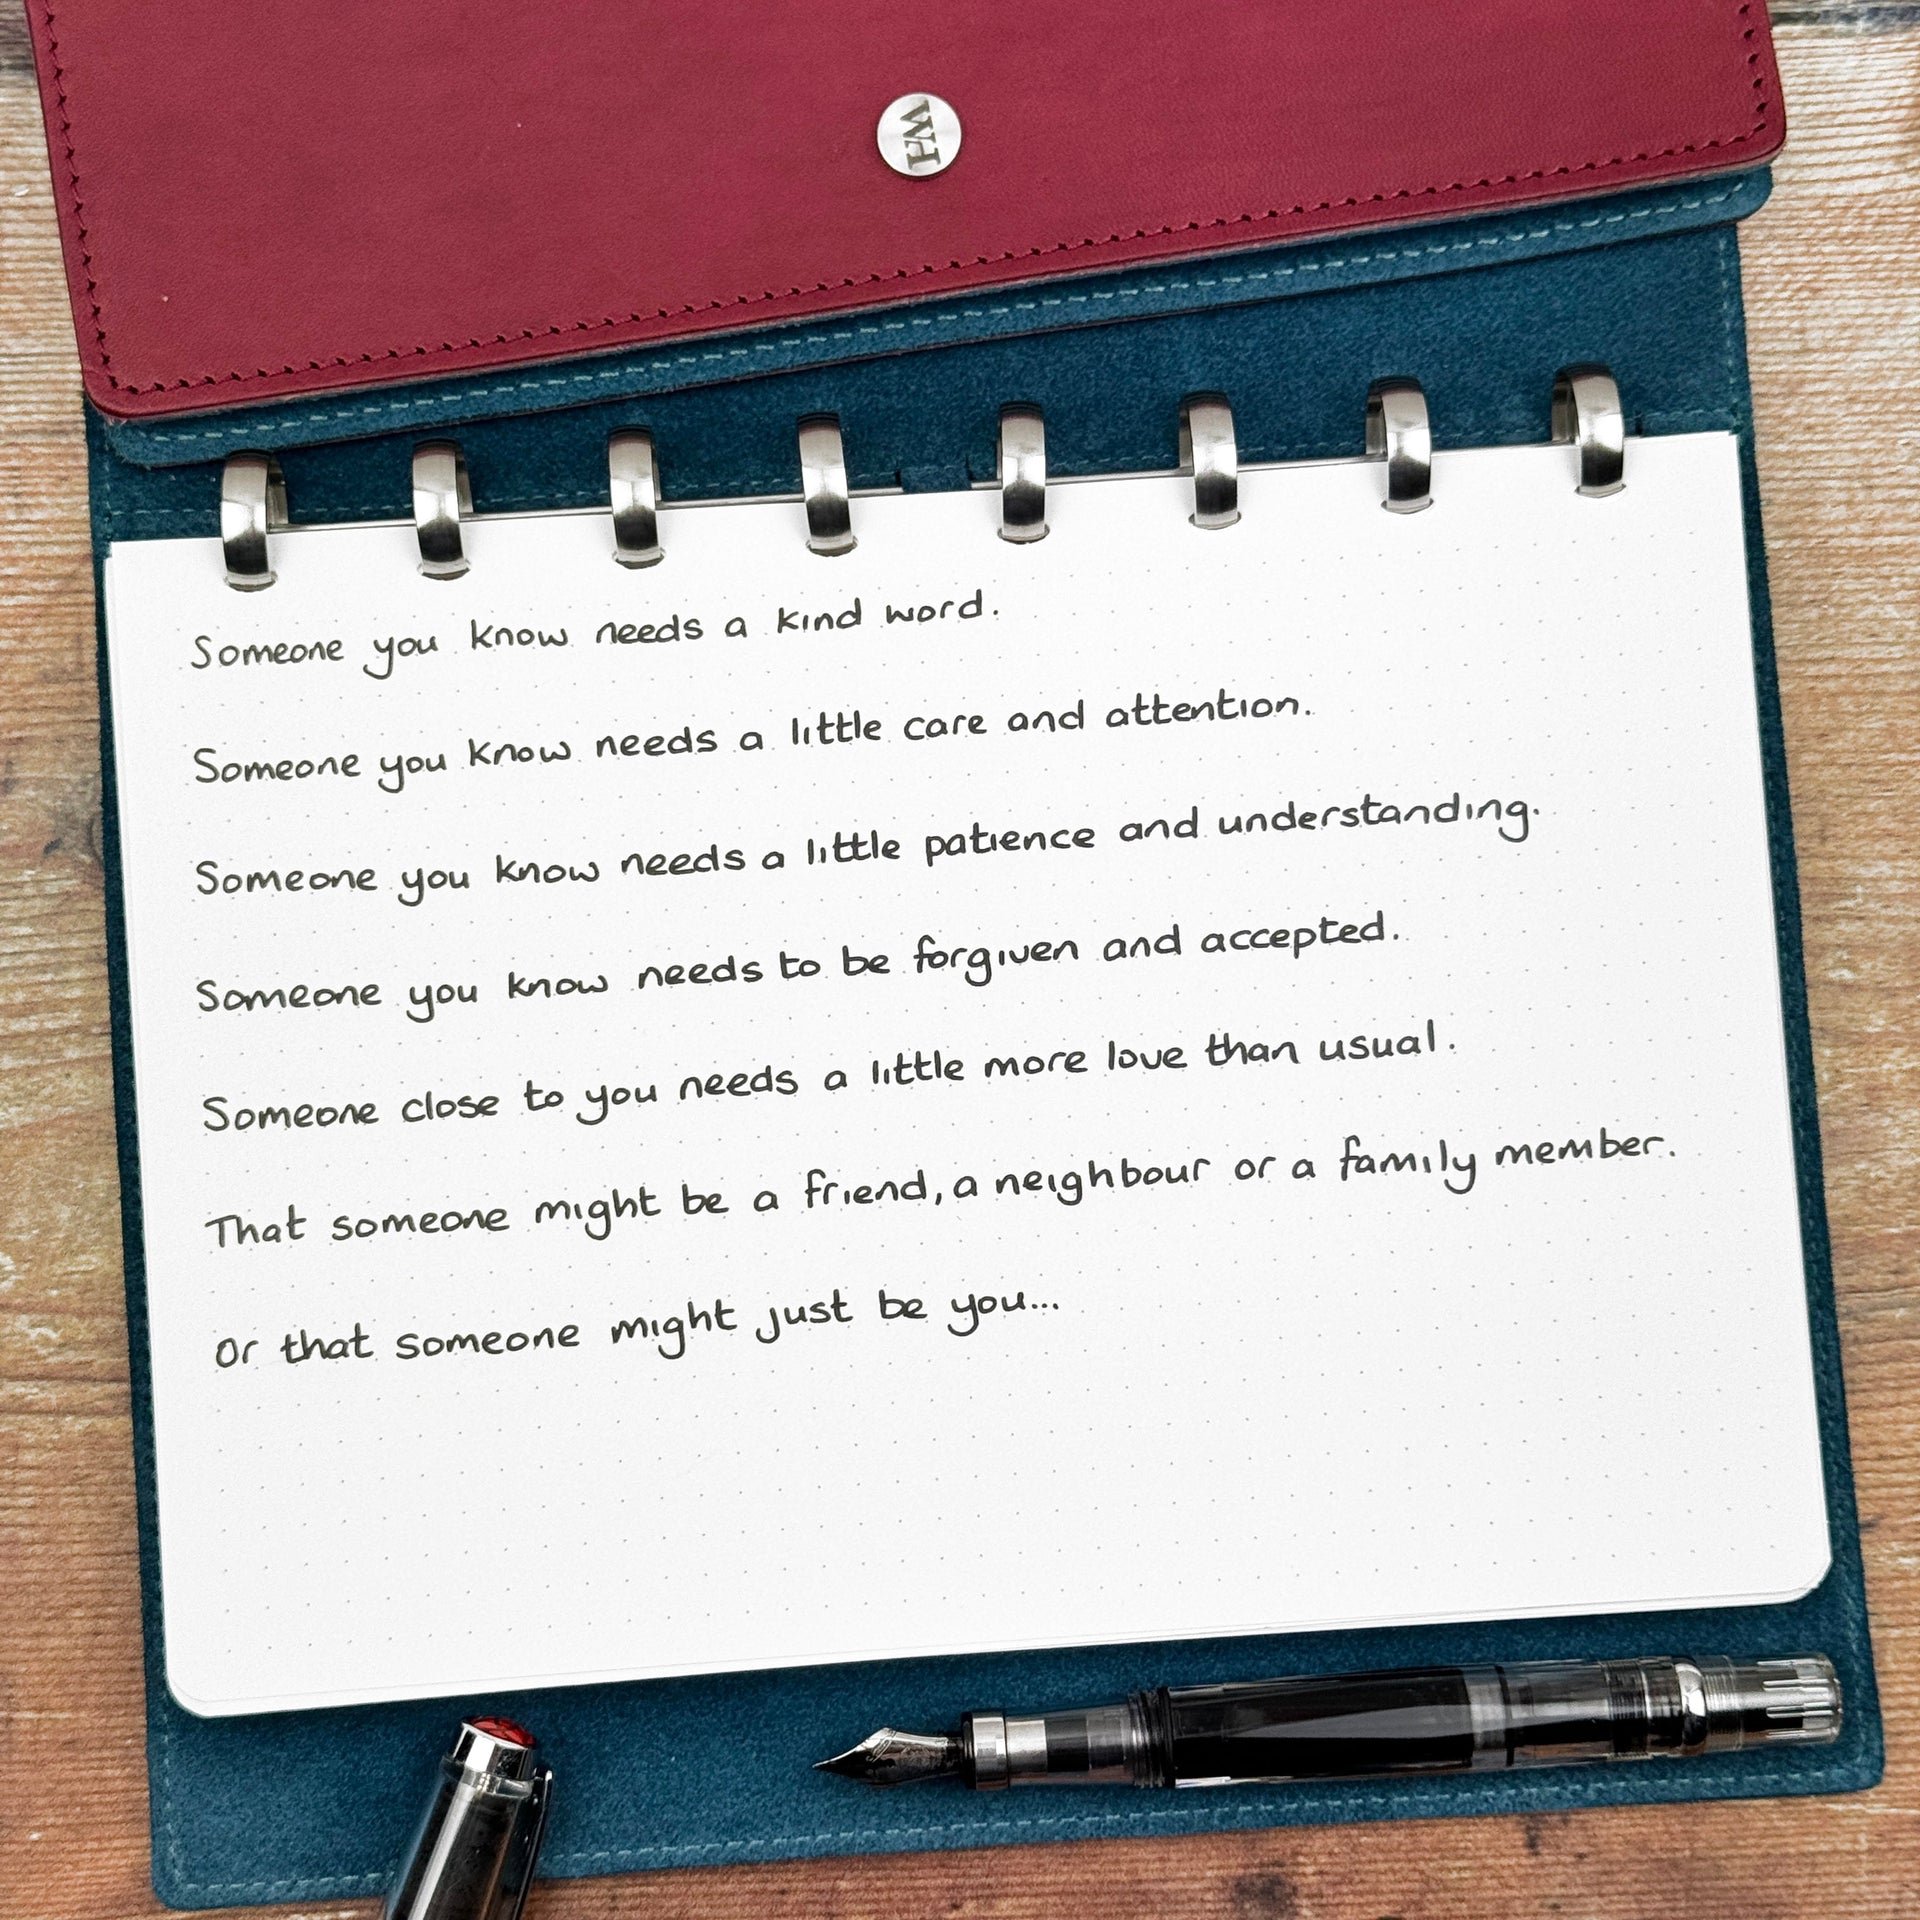 WH
Someone you know needs a kind word.
Someone you know needs a little care and attention.
Someone you know needs a little patience and understanding.
Someone you know needs to be forgiven and accepted.
Someone close to you needs a little more love than usual.
That someone might be a friend, a neighbour or a family member.
Or that someone might just be you...